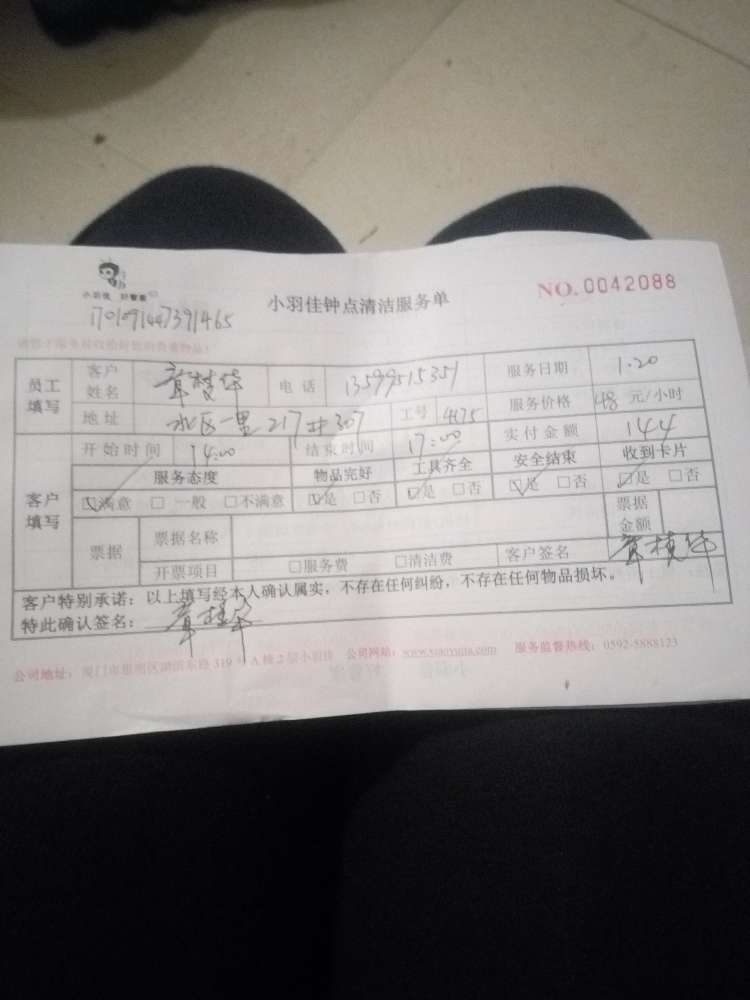 小羽佳 好管家
小羽佳钟点清洁服务单
NO.0042088
1701091447391465
员工填写
客户姓名
电话 13599515351
服务日期 1.20
地址 水区一里217#307
工号 4175
服务价格 48 元/小时
客户填写
开始时间 14:00
结束时间 17:00
实付金额 144
服务态度 物品完好 工具齐全 安全结束 收到卡片
☑满意 □一般 □不满意 ☑是 □否 ☑是 □否 ☑是 □否 ☑是 □否
票据
票据名称
票据金额
开票项目 □服务费 □清洁费
客户签名
客户特别承诺:以上填写经本人确认属实,不存在任何纠纷,不存在任何物品损坏。
特此确认签名:
公司地址: 319号A栋2层小羽佳 公司网站:www.xiaoyujia.com 服务监督热线:0592-5888123